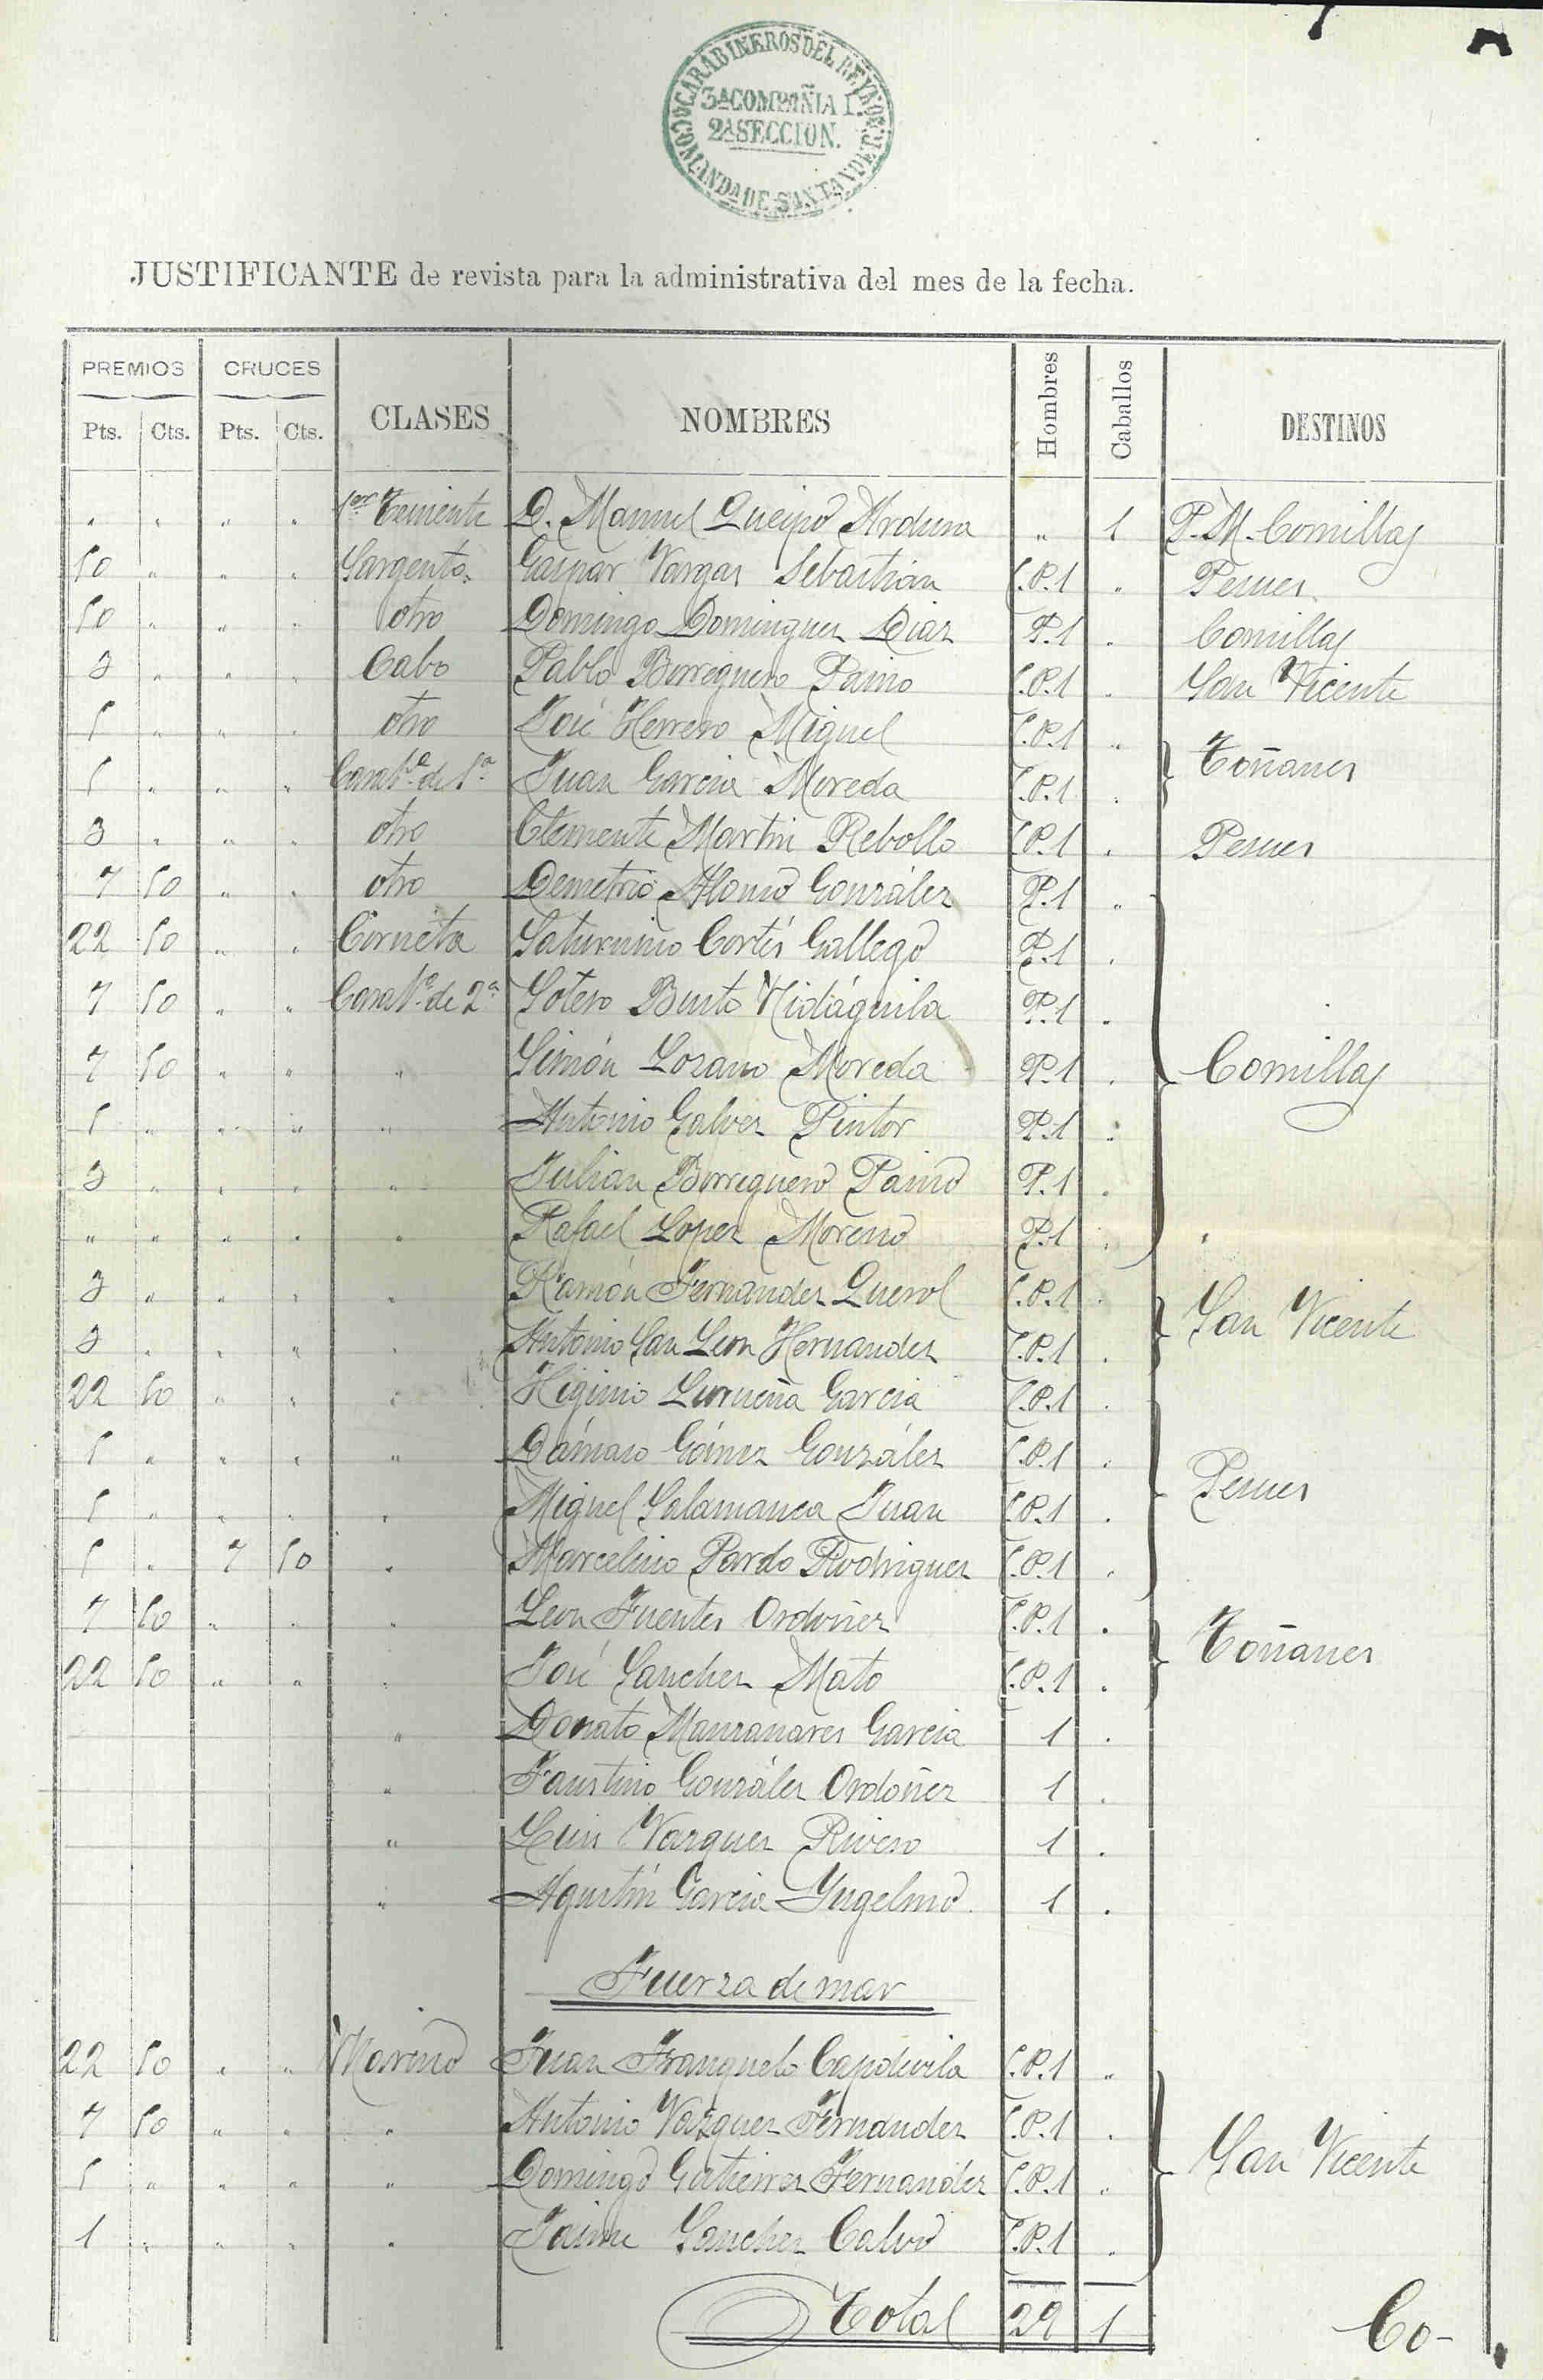 CARABINEROS DEL REYNO
3ª COMPAÑIA
2ª SECCION.
COMANDA DE SANTANDER
JUSTIFICANTE de revista para la administrativa del mes de la fecha.
PREMIOS CRUCES CLASES NOMBRES Hombres Caballos DESTINOS
Pts. Cts. Pts. Cts.
" " " " 1er Teniente D. Manuel Queipo Ardura " 1 P.M. Comillas
50 " " " Sargento. Gaspar Vargas Sebastián C.P.1 " Pesues
50 " " " otro Domingo Dominguez Diaz P.1 " Comillas
3 " " " Cabo Pablo Borreguero Paino C.P.1 " San Vicente
5 " " " otro José Herrero Miguel C.P.1 " Toñanes
5 " " " Carabº de 1ª Juan Garcia Moreda C.P.1 "
3 " " " otro Clemente Martin Rebollo C.P.1 " Pesues
7 50 " " otro Demetrio Alonso González P.1 "
22 50 " " Corneta Saturnino Cortés Gallego P.1 "
7 50 " " Carabº de 2ª Sotero Busto Nidáguila P.1 "
7 50 " " " Simón Lozano Moreda P.1 " Comillas
5 " " " " Antonio Galvez Pintor P.1 "
3 " " " " Julian Borreguero Paino P.1 "
" " " " " Rafael Lopez Moreno P.1 "
3 " " " " Ramón Fernandez Querol C.P.1 " San Vicente
3 " " " " Antonio San Leon Hernandez C.P.1 "
22 50 " " " Higinio Lurueña Garcia C.P.1 "
5 " " " " Dámaso Gómez González C.P.1 " Pesues
5 " " " " Miguel Salamanca Juan C.P.1 "
5 " 7 50 " Marcelino Pardo Rodriguez C.P.1 "
7 50 " " " Leon Fuentes Ordoñez C.P.1 " Toñanes
22 50 " " " José Sanchez Mato C.P.1 "
" Donato Manzanares Garcia 1 "
" Faustino González Ordoñez 1 "
" Luis Vazquez Rivero 1 "
" Agustín Garcia Yugelmo 1 "
Fuerza de mar
22 50 " " Marino Juan Franquelo Capdevila C.P.1 "
7 50 " " " Antonio Vazquez Fernandez C.P.1 " San Vicente
5 " " " " Domingo Gutierrez Fernandez C.P.1 "
1 " " " " Jaime Sanchez Calvo C.P.1 "
Total 29 1
Co-